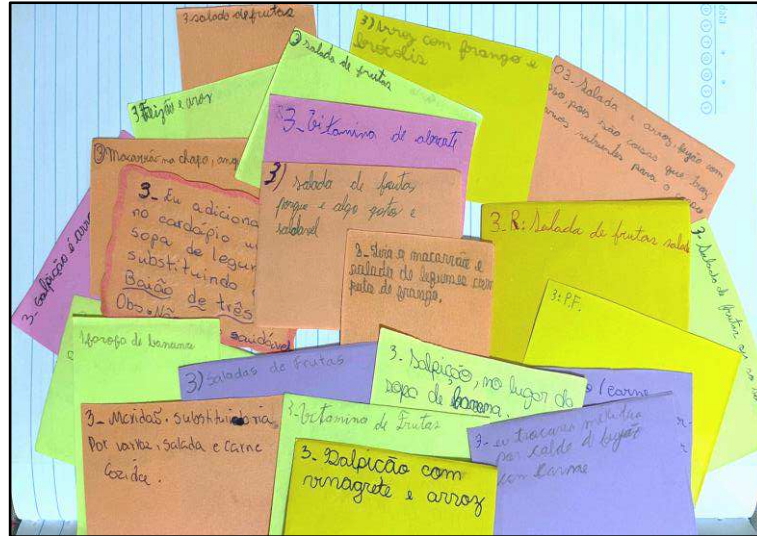 3- salada de frutas
3) salada de frutas
3) Arroz com frango e
brócolis
03- Salada e arroz, feijão com
pois são coisas que traz
nutrientes para o corpo
3 Feijão e arroz
3- Vitamina de abacate
3) Macarrão na chapa,
3- Eu adiciona
no cardápio u
sopa de legum
substituindo
Baião de três
Obs. Nã
saudável
3) salada de frutas
porque e algo gostoso e
saudavel
3- Galpicão é arro
3- Seria a macarrão e
salada de legumes com
pata de frango.
3- R: Salada de frutas salada
3- Salada de frutas
3: P.F.
farofa de banana
3) Saladas de frutas
3- Salpicão, no lugar da
sopa de banana.
carne
3- Maridão. substituiria
Por arroz, salada e carne
Cozida.
3- Vitamina de Frutas
3- Salpicão com
vinagrete e arroz
3- eu trocaria
por caldo d feijão
com carne